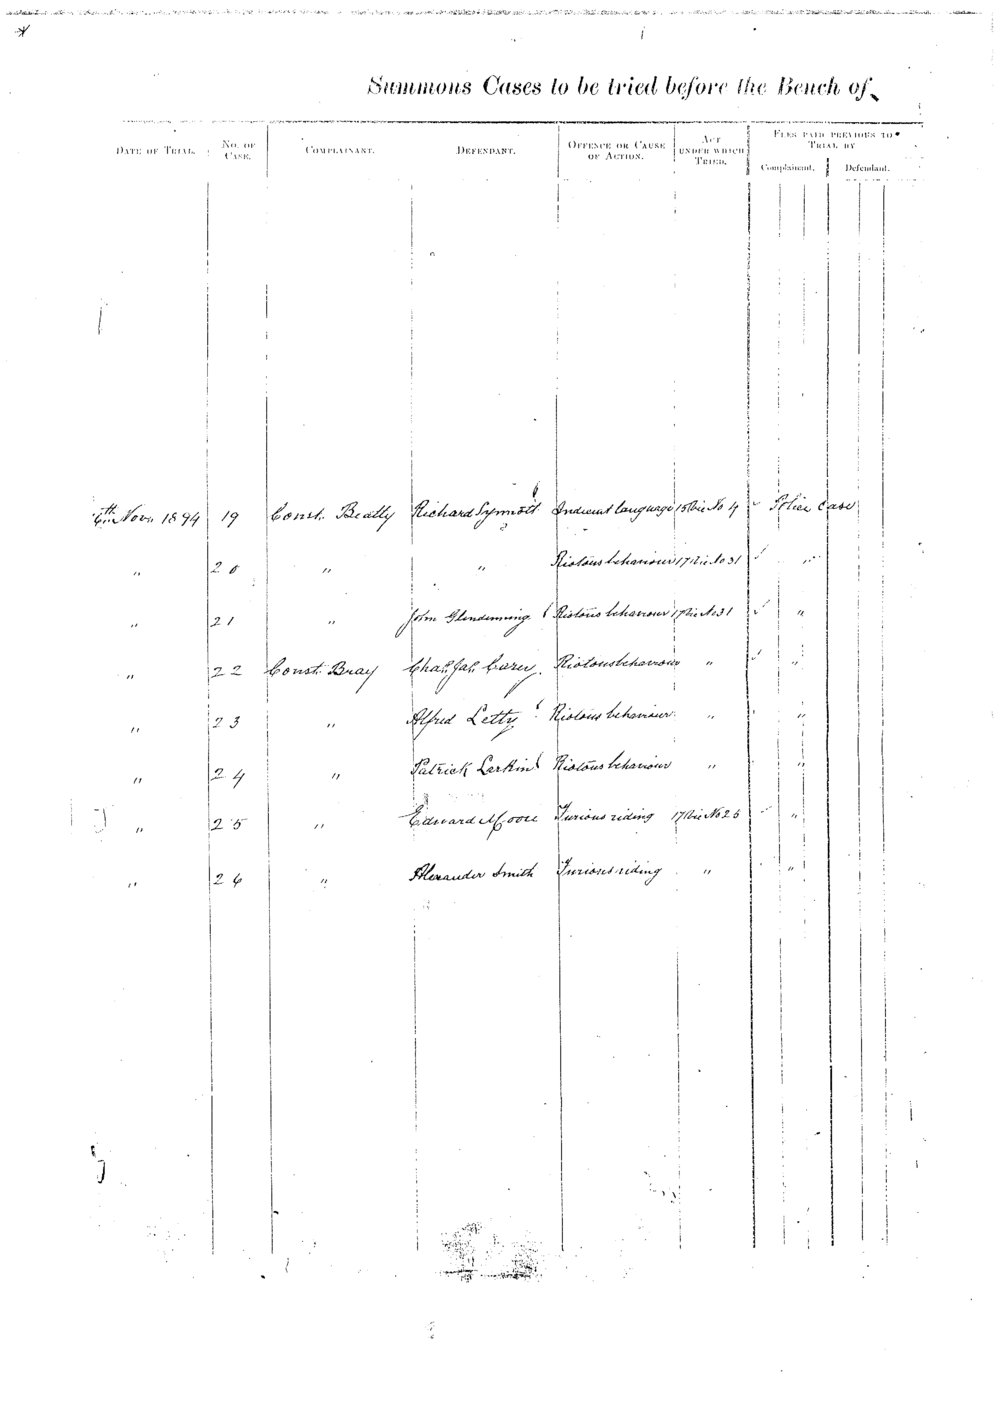 Summons Cases to be tried before the Bench of
DATE OF TRIAL. NO. OF CASE. COMPLAINANT. DEFENDANT. OFFENCE OR CAUSE OF ACTION. ACT UNDER WHICH TRIED. FEES PAID PREVIOUS TO TRIAL BY
Complainant. Defendant.
6th Novr. 1894 19 Const. Beatty Richard Synnott Indecent language 15 Vic No 4 Police Case
" 20 " " Riotous behaviour 17 Vic No 31 "
" 21 " John Glendinning Riotous behaviour 17 Vic No 31 "
" 22 Const. Bray Chas. Jas. Carey Riotous behaviour " "
" 23 " Alfred Letty Riotous behaviour " "
" 24 " Patrick Larkin Riotous behaviour " "
" 25 " Edward Moore Furious riding 17 Vic No 25 "
" 26 " Alexander Smith Furious riding " "